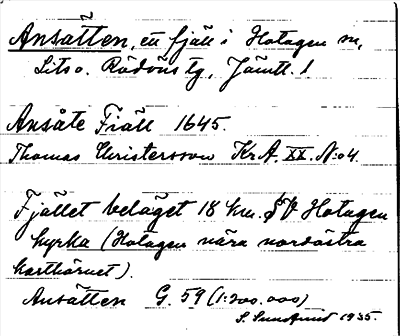 Ansätten, ett fjäll i Hotagen sn,
Lits o. Rödöns tg, Jämtl. l
Ansåte Fiäll 1645.
Thomas Christersson Kr.A. XX. N:o 4.
Fjället beläget 18 km. SV Hotagen
kyrka (Hotagen nära nordöstra
karthörnet).
Ansätten G. 59 (1:200.000)
S. Sundlund 1935